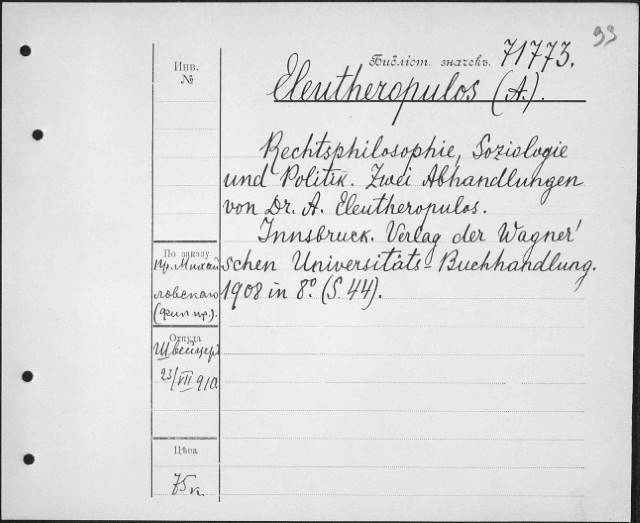 93
Библіот. значекъ. 71773.
Инв.
№
Eleutheropulos (A.).
Rechtsphilosophie, Soziologie
und Politik. Zwei Abhandlungen
von Dr. A. Eleutheropulos.
Innsbruck. Verlag der Wagner'
schen Universitäts-Buchhandlung.
1908 in 8º. (S. 44).
По заказу
пр. Михай
ловскаго
(фил. пр.).
Откуда
Швейцер
23/VII 910.
Цѣна
75 к.